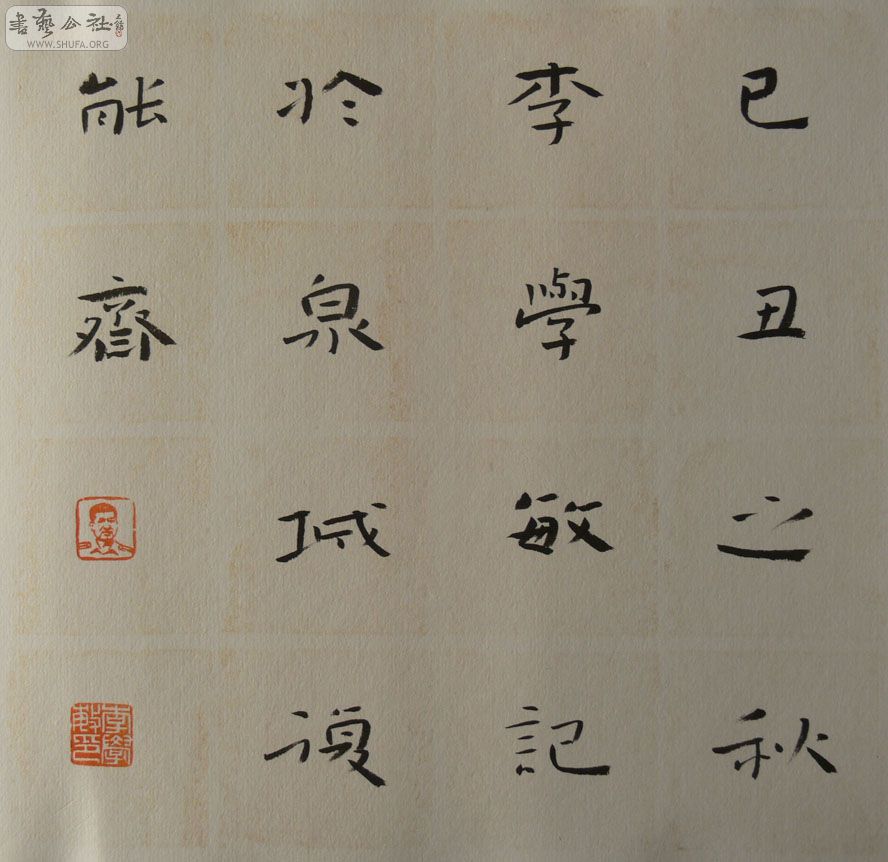 己丑之秋
李學敏記
於泉城
能齋
李學敏印
書藝公社
WWW.SHUFA.ORG